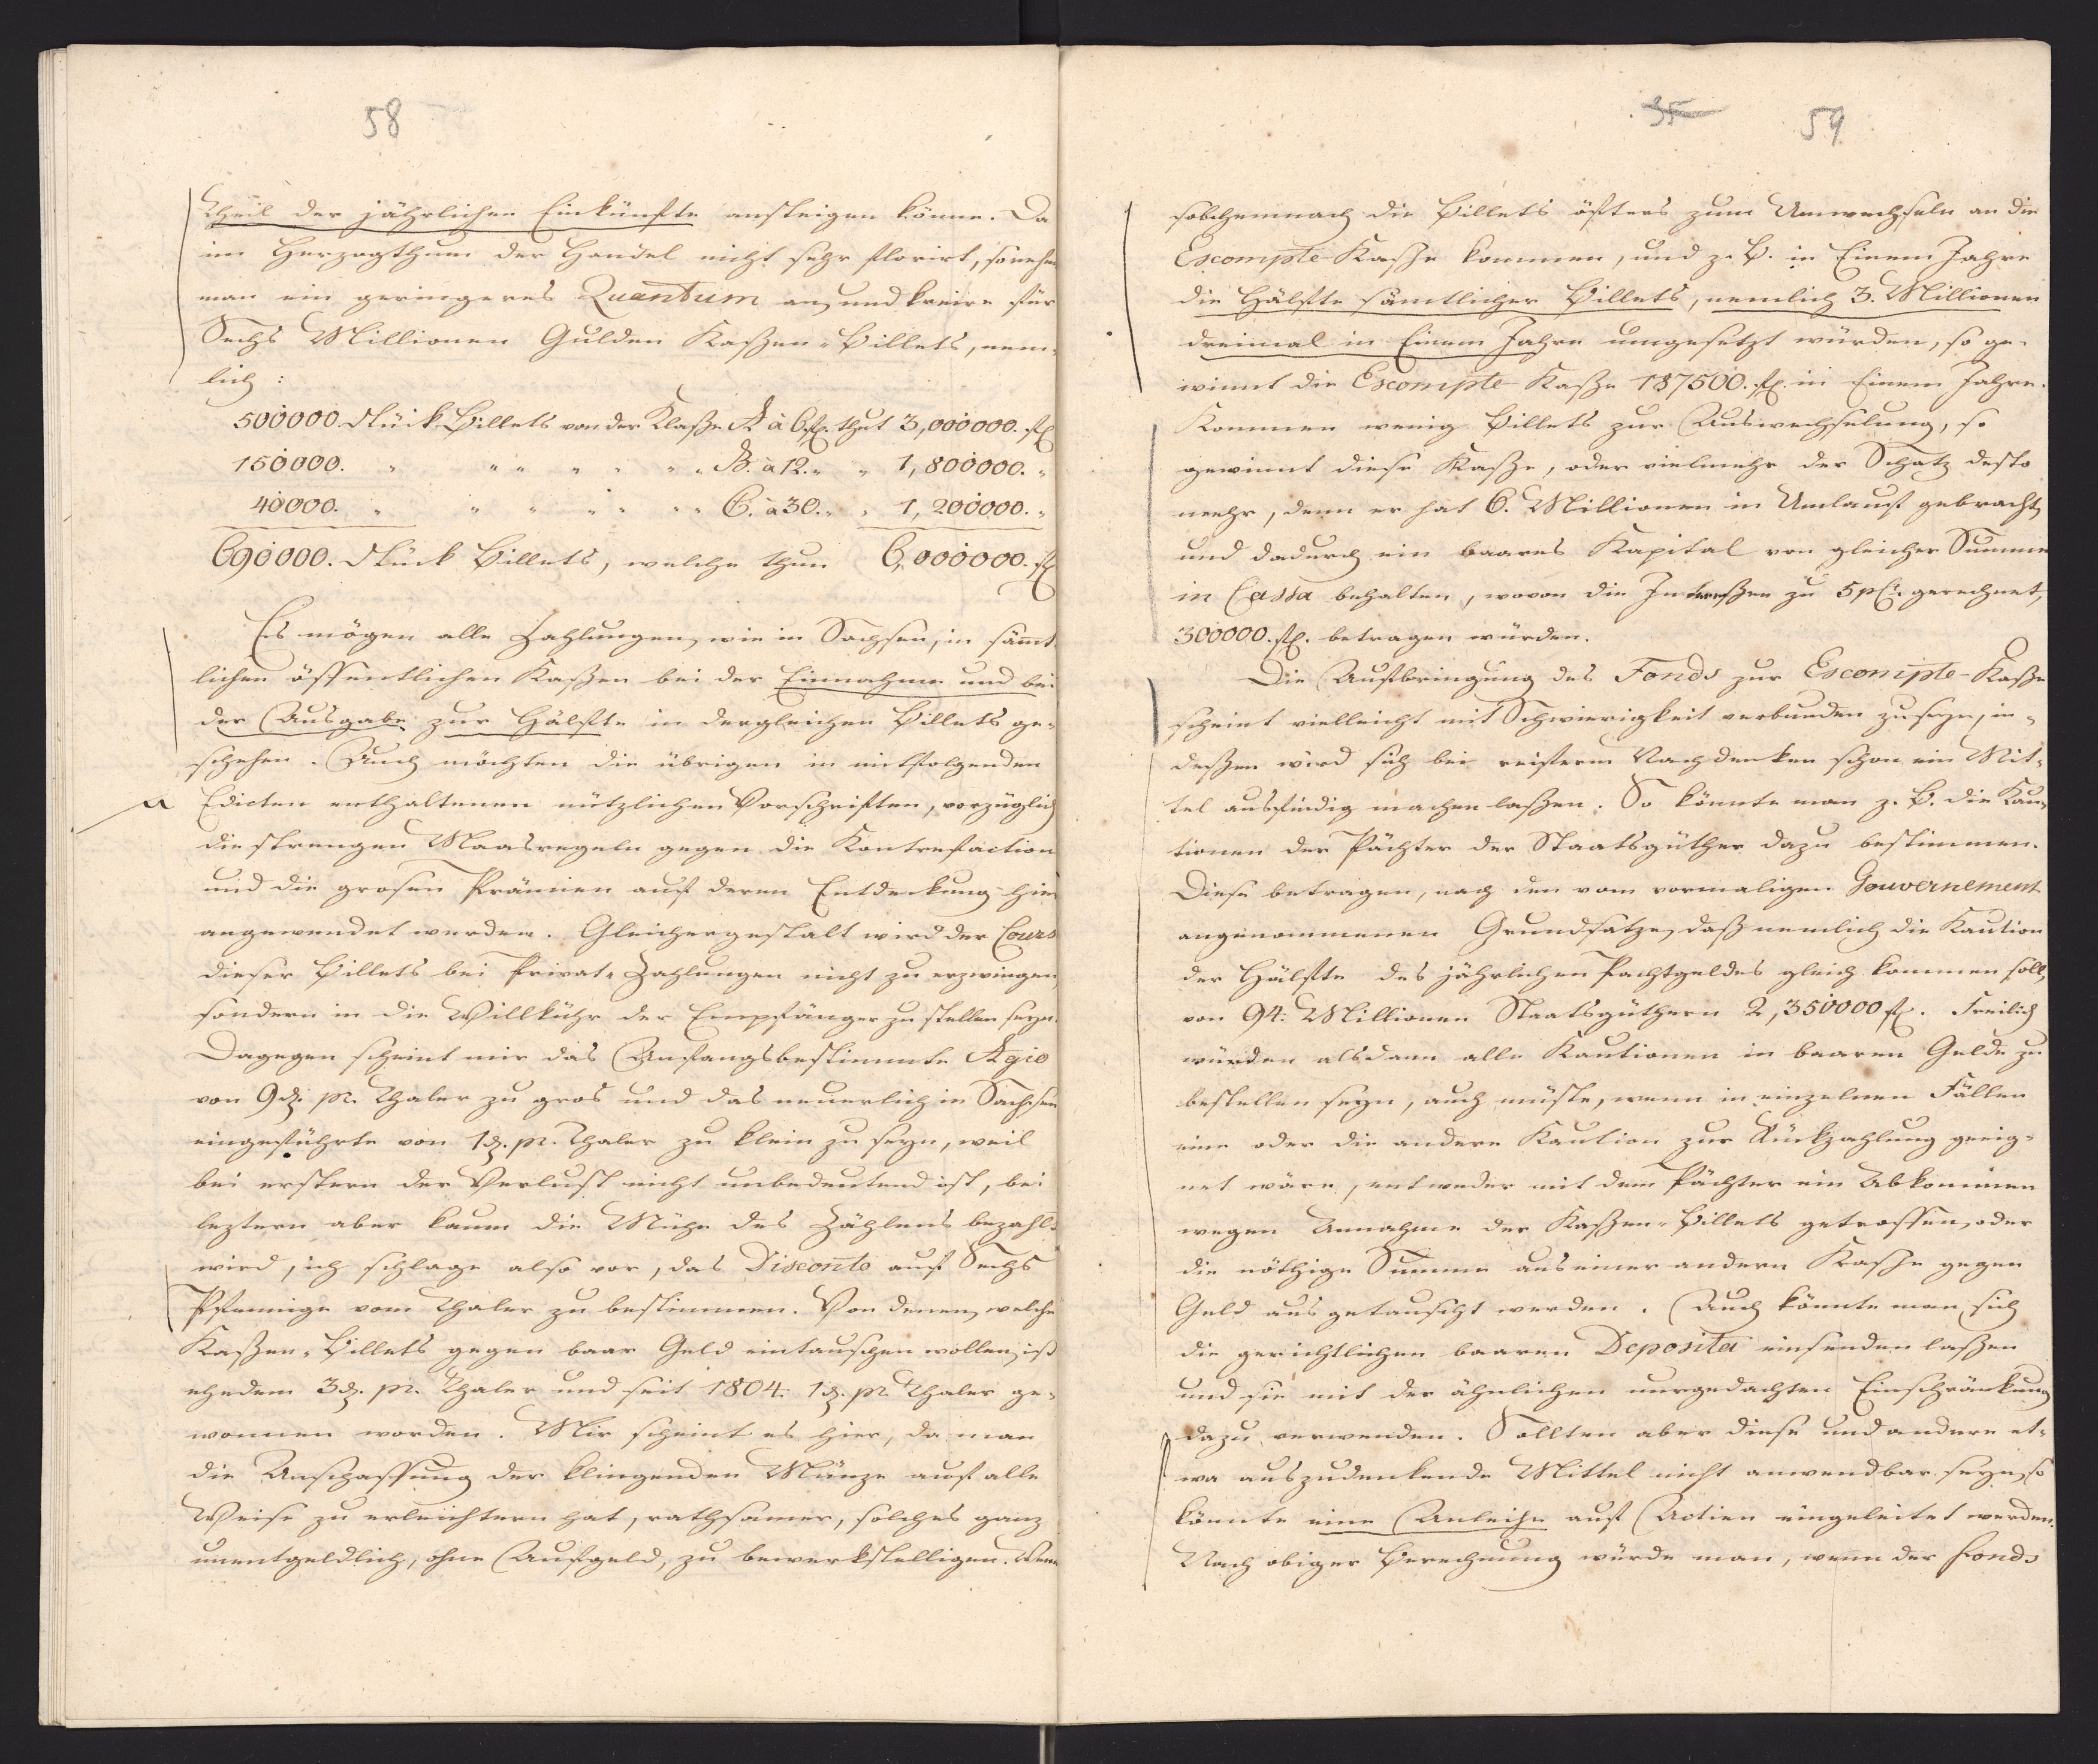 58
Theil der jährlichen Einkünfte ansteigen könne. Da
im Herzogthum der Handel nicht sehr florirt, so nehme
man ein geringeres Quantum an, und kreire für
Sechs Millionen Gulden Kaßen-Billets, nem-
lich:
500000. Stück Billets von der Klaße A à 6 fl. thut 3,000000. fl
150000. " " " " " " " B. à 12. " " 1,800000. "
40000. " " " " " " " C. à 30. " " 1,200000. "
690000. Stück Billets, welche thun 6,000000. fl
Es mögen alle Zahlungen, wie in Sachsen, in sämt-
lichen öffentlichen Kaßen bei der Einnahme und bei
der Ausgabe zur Hälfte in dergleichen Billets ge-
schehen. Auch möchten die übrigen in mitfolgenden
a Edicten enthaltenen nützlichen Vorschriften, vorzüglich
die strengen Maasregeln gegen die Kontrefaction
und die grosen Prämien auf deren Entdeckung hier
angewendet werden. Gleichergestalt wird der Cours
dieser Billets bei Privat-Zahlungen nicht zu erzwingen,
sondern in die Willkühr der Empfänger zu stellen seyn.
Dagegen scheint mir das Anfangsbestimmte Agio
von 9 d. pr. Thaler zu gros und das neuerlich in Sachsen
eingeführte von 1 d. pr. Thaler zu klein zu seyn, weil
bei erstern der Verlust nicht unbedeutend ist, bei
leztern aber kaum die Mühe des Zählens bezahlt
wird, ich schlage also vor, das Disconto auf Sechs
Pfennige vom Thaler zu bestimmen. Von denen, welche
Kaßen-Billets gegen baar Geld eintauschen wollen, ist
ehedem 3 d. pr. Thaler und seit 1804. 1 d. pr Thaler ge-
wonnen worden. Mir scheint es hier, da man
die Anschaffung der klingenden Münze auf alle
Weise zu erleichtern hat, rathsamer, solches ganz
unentgeldlich, ohne Aufgeld, zu bewerkstelligen. Wenn
35 59
solchemnach die Billets öfters zum Umwechseln an die
Escompte-Kaße kommen, und z. B. in Einem Jahre
die Hälfte sämtlicher Billets, nemlich 3. Millionen
dreimal in Einem Jahre umgesetzt würden, so ge-
winnt die Escompte Kaße 187500. fl. in Einem Jahre.
Kommen wenig Billets zur Auswechselung, so
gewinnt diese Kaße, oder vielmehr der Schatz desto
mehr, denn er hat 6. Millionen in Umlauf gebracht,
und dadurch ein baares Kapital von gleicher Summe
in Cassa behalten, wovon die Intereßen zu 5 pC. gerechnet,
300000. fl. betragen würden.
Die Aufbringung des Fonds zur Escompte-Kaße
scheint vielleicht mit Schwierigkeit verbunden zu seyn, in-
deßen wird sich bei reiferm Nachdenken schon ein Mit-
tel ausfindig machen laßen. So könnte man z. B. die Kau-
tionen der Pächter der Staatsgüther dazu bestimmen.
Diese betragen, nach den vom vormaligen Gouvernement
angenommenen Grundsatze, daß nemlich die Kaution
der Hälfte des jährlichen Pachtgeldes gleich kommen soll,
von 94. Millionen Staatsgüthern 2,350000 fl. Freilich
würden alsdann alle Kautionen in baaren Gelde zu
bestellen seyn, auch müste, wenn in einzelnen Fällen
eine oder die andere Kaution zur Rückzahlung geeig-
net wäre, entweder mit dem Pächter ein Abkommen
wegen Annahme der Kaßen-Billets getroffen, oder
die nöthige Summe aus einer andern Kaße gegen
Geld ausgetauscht werden. Auch könnte man sich
die gerichtlichen baaren Deposita einsenden laßen
und sie mit der ähnlichen nurgedachten Einschränkung
dazu verwenden. Sollten aber diese und andere et-
wa auszudenkende Mittel nicht anwendbar seyn, so
könnte eine Anleihe auf Actien eingeleitet werden.
Nach obiger Berechnung würde man, wenn der Fonds